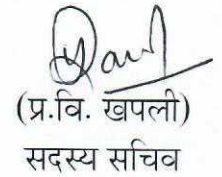 (प्र.वि. खपली)
सदस्य सचिव